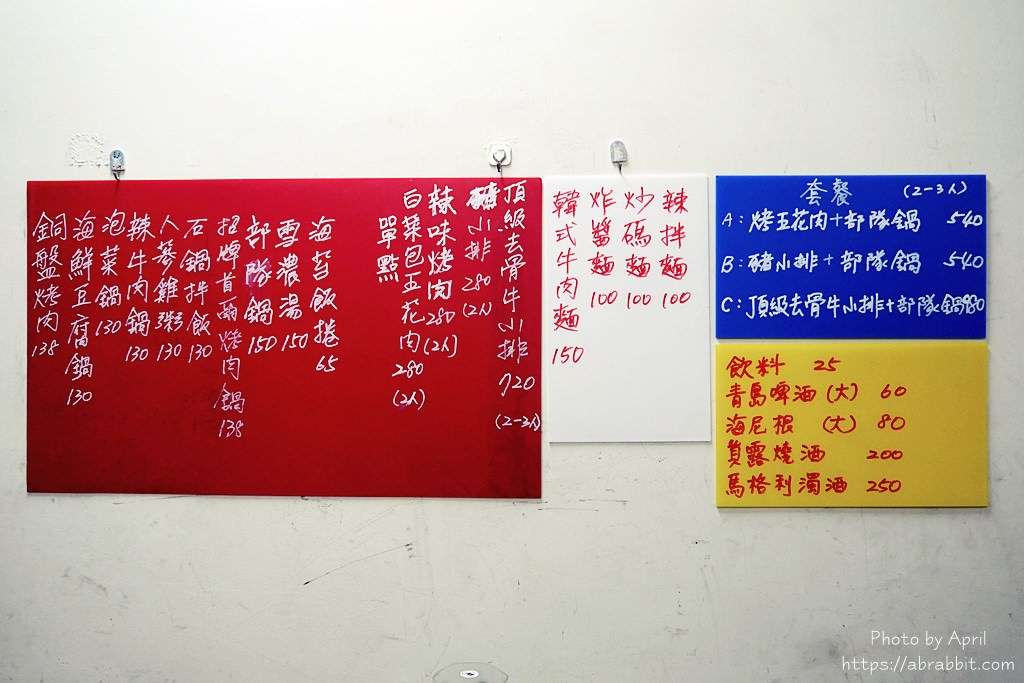 頂級去骨牛小排 720 (2-3人)
豬小排 280 (2人)
辣味烤肉 280 (2人)
白菜包五花肉 280 (2人)
單點
海苔飯捲 65
雪濃湯 150
部隊鍋 150
招牌首爾烤肉鍋 138
石鍋拌飯 130
人蔘雞粥 130
辣牛肉鍋 130
泡菜鍋 130
海鮮豆腐鍋 130
銅盤烤肉 138
辣拌麵 100
炒碼麵 100
炸醬麵 100
韓式牛肉麵 150
套餐 (2-3人)
A:烤五花肉+部隊鍋 540
B:豬小排+部隊鍋 540
C:頂級去骨牛小排+部隊鍋
飲料 25
青島啤酒(大) 60
海尼根 (大) 80
真露燒酒 200
馬格利濁酒 250
Photo by April
https://abrabbit.com